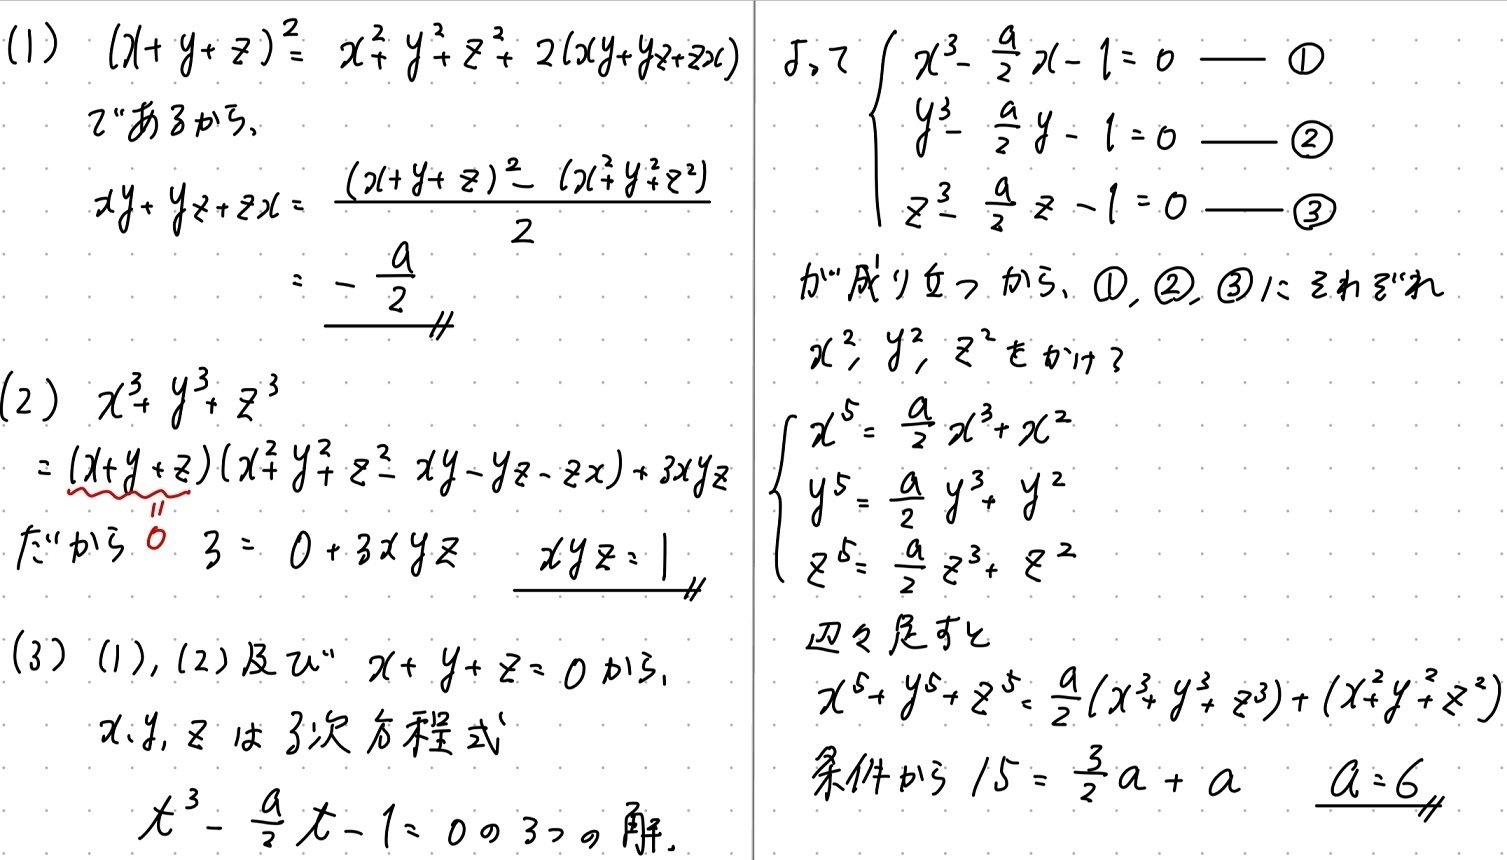 (1) (x+y+z)²= x²+y²+z²+2(xy+yz+zx)
であるから、
xy+yz+zx = \frac{(x+y+z)²-(x²+y²+z²)}{2}
= -\frac{a}{2}
(2) x³+y³+z³
= (x+y+z)(x²+y²+z²-xy-yz-zx)+3xyz
= 0
だから 3 = 0+3xyz xyz=1
(3) (1),(2)及び x+y+z=0から、
x,y,zは3次方程式
t³-\frac{a}{2}t-1=0の3つの解.
よって x³-\frac{a}{2}x-1=0 — ①
y³-\frac{a}{2}y-1=0 — ②
z³-\frac{a}{2}z-1=0 — ③
が成り立つから、①,②,③にそれぞれ
x²,y²,z²をかける
x⁵=\frac{a}{2}x³+x²
y⁵=\frac{a}{2}y³+y²
z⁵=\frac{a}{2}z³+z²
辺々足すと
x⁵+y⁵+z⁵=\frac{a}{2}(x³+y³+z³)+(x²+y²+z²)
条件から 15=\frac{3}{2}a+a a=6